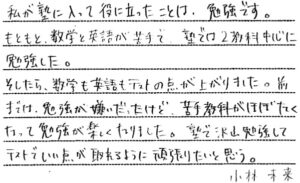 私が塾に入って役に立ったことは、勉強です。
もともと、数学と英語が苦手で、塾では2教科中心に
勉強した。
そしたら、数学も英語もテストの点が上がりました。前
までは、勉強が嫌いだったけど、苦手教科がほぼなく
なって勉強が楽しくなりました。塾で沢山勉強して
テストでいい点が取れるように頑張りたいと思う。
小林 未来